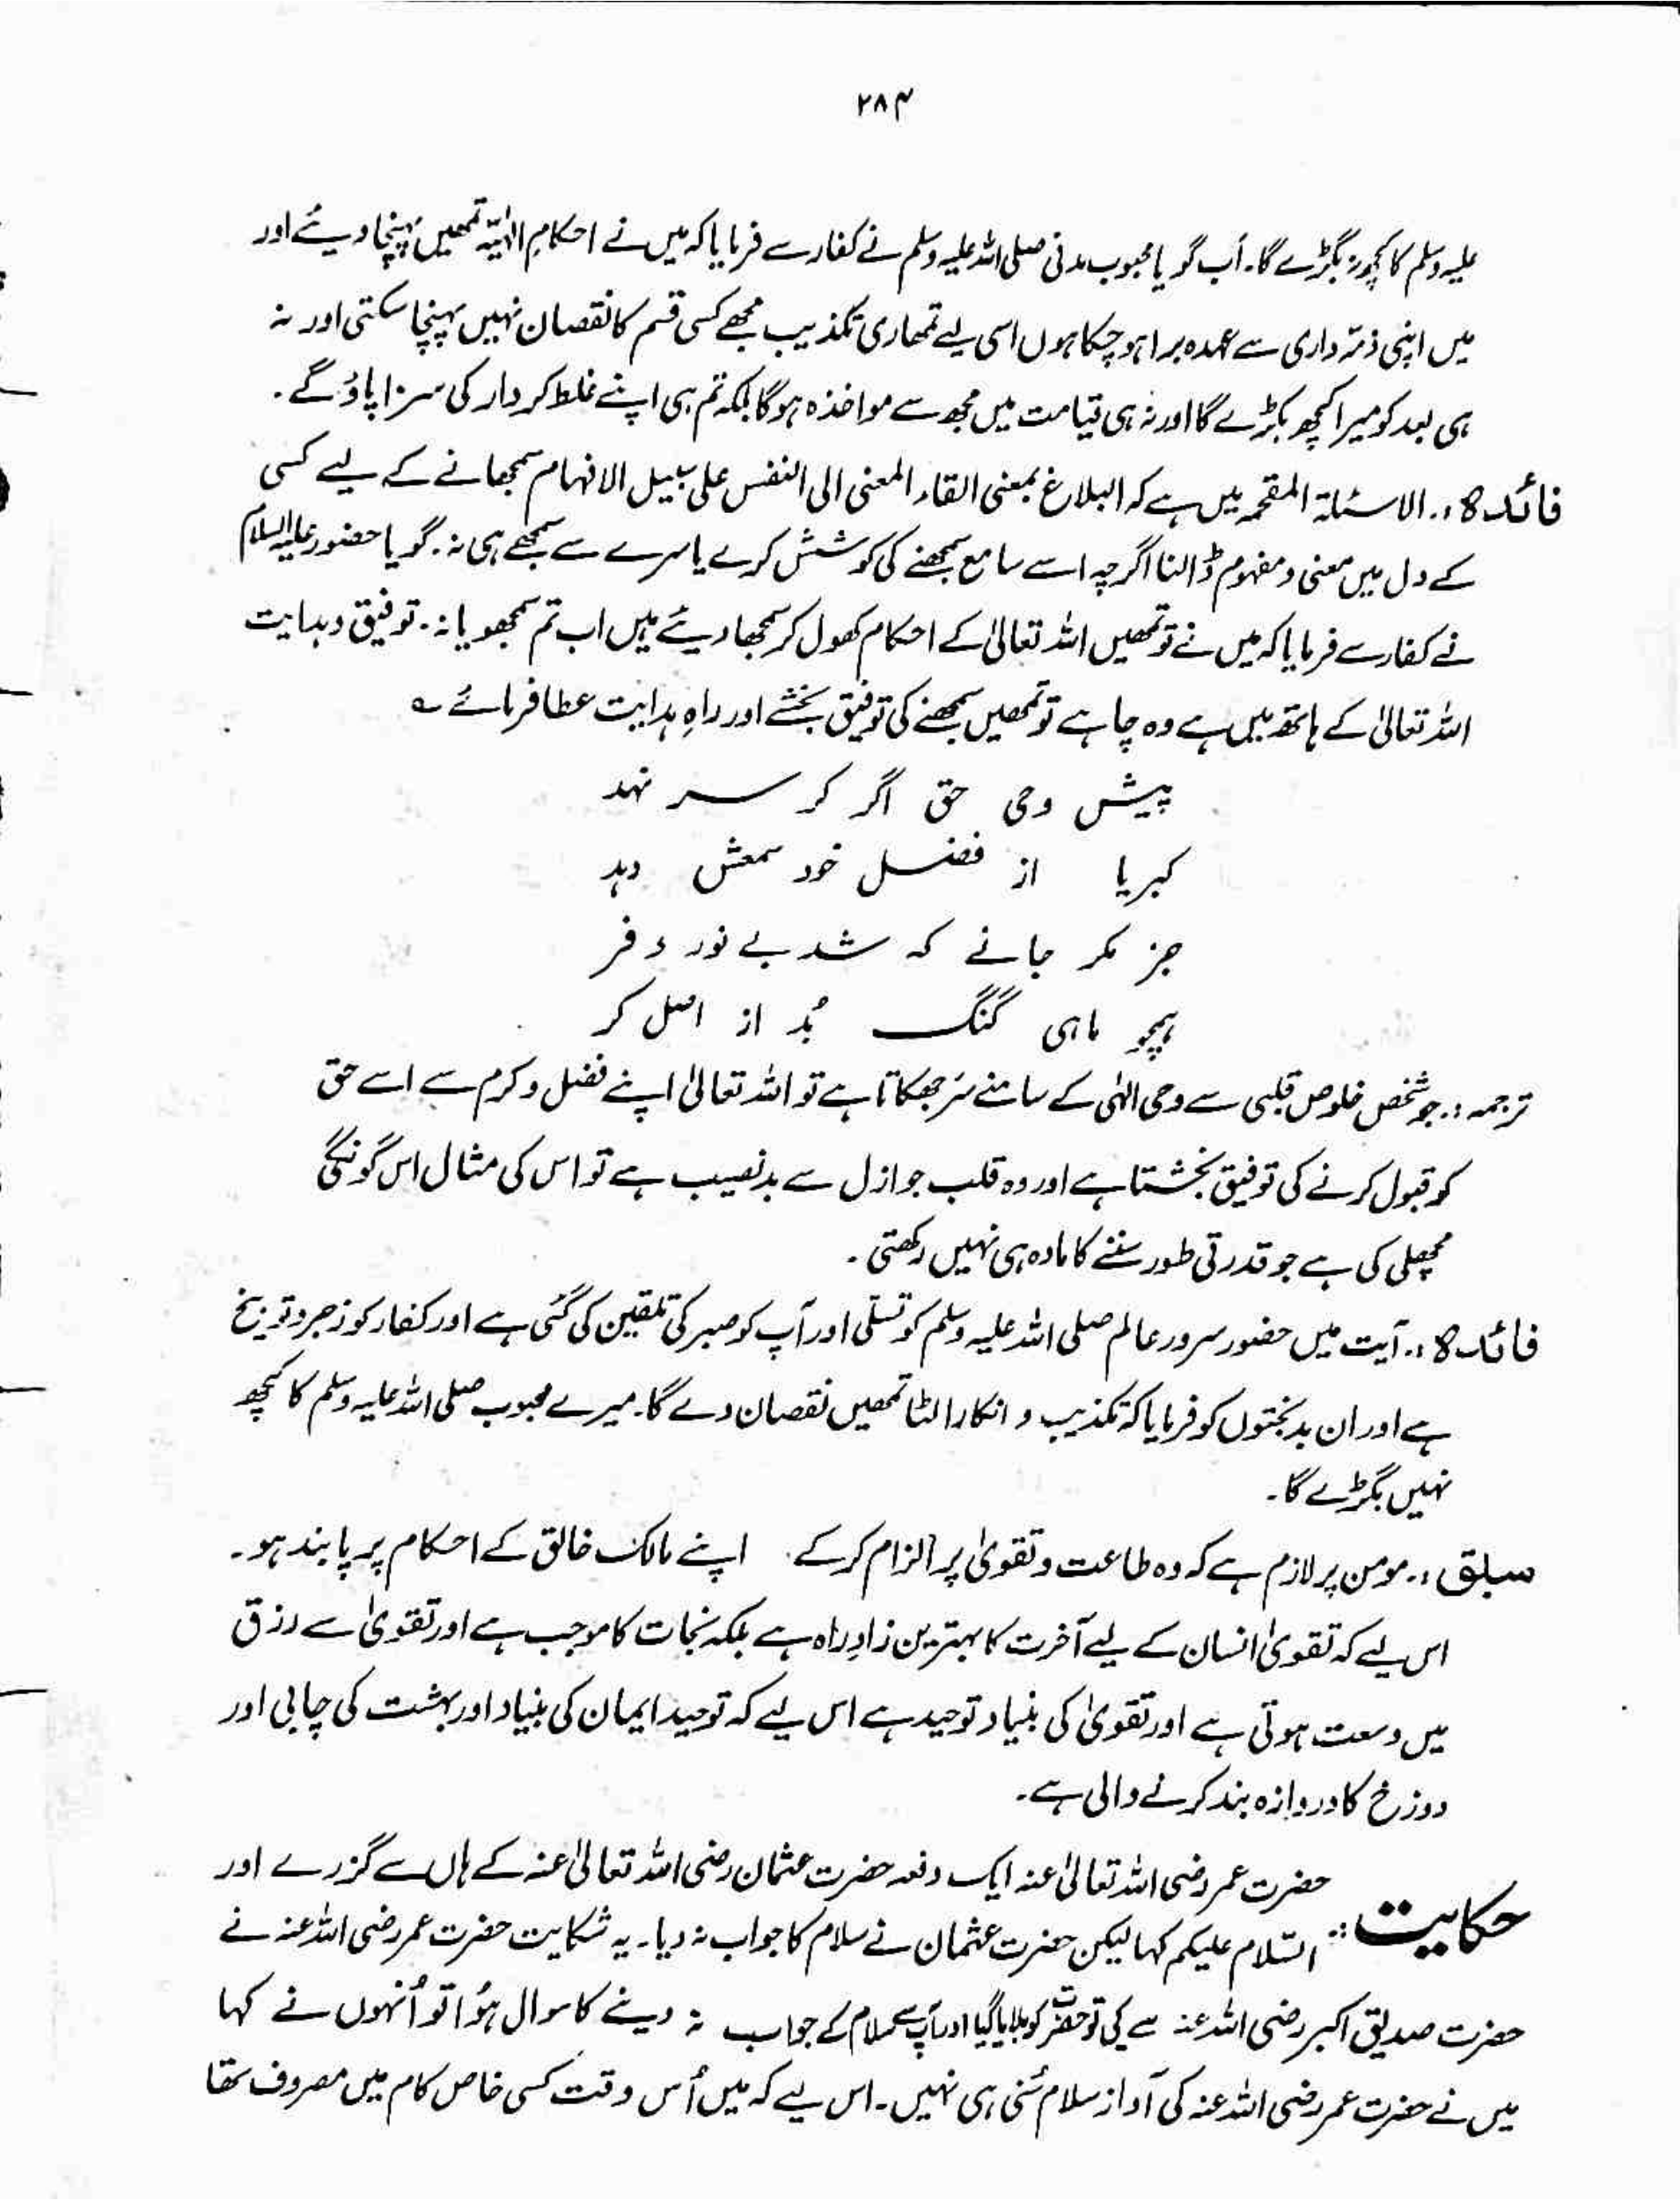 ۲۸۴
علیہ وسلم کا کچھ نہ بگڑے گا۔ اَب گویا محبوب مدنی صلی اللہ علیہ وسلم نے کفار سے فرمایا کہ میں نے احکامِ الٰہیّہ تمھیں پہنچا دیئے اور
میں اپنی ذمّہ داری سے عہدہ برا ہو چکا ہوں اسی لیے تمھاری تکذیب مجھے کسی قسم کا نقصان نہیں پہنچا سکتی اور نہ
ہی بعد کو میرا کچھ بگڑے گا اور نہ ہی قیامت میں مجھ سے مواخذہ ہوگا بلکہ تم ہی اپنے غلط کردار کی سزا پاؤ گے۔
فائدہ :۔ الاسئلۃ المقحمہ میں ہے کہ البلاغ بمعنی القاء المعنی الی النفس علی سبیل الافہام سمجھانے کے لیے کسی
کے دل میں معنی و مفہوم ڈالنا اگرچہ اسے سامع سمجھنے کی کوشش کرے یا سرے سے سمجھے ہی نہ۔ گویا حضور علیہ السلام
نے کفار سے فرمایا کہ میں نے تو تمھیں اللہ تعالیٰ کے احکام کھول کر سمجھا دیئے ہیں اب تم سمجھو یا نہ۔ توفیق و ہدایت
اللہ تعالیٰ کے ہاتھ میں ہے وہ چاہے تو تمھیں سمجھنے کی توفیق بخشے اور راہِ ہدایت عطا فرمائے ؎
پیش وحی حق اگر کر سر نہد
کبریا از فضل خود سمعش دہد
جز مکر جانے کہ شد بے نور و فر
ہمچو ماہی گنگ بُد از اصل کر
ترجمہ :۔ جو شخص خلوص قلبی سے وحی الٰہی کے سامنے سَر جھکاتا ہے تو اللہ تعالیٰ اپنے فضل و کرم سے اسے حق
کو قبول کرنے کی توفیق بخشتا ہے اور وہ قلب جو ازل سے بدنصیب ہے تو اس کی مثال اس گونگی
مچھلی کی ہے جو قدرتی طور سننے کا مادہ ہی نہیں رکھتی۔
فائدہ :۔ آیت میں حضور سرور عالم صلی اللہ علیہ وسلم کو تسلّی اور آپ کو صبر کی تلقین کی گئی ہے اور کفار کو زجر و توبیخ
ہے اور ان بدبختوں کو فرمایا کہ تکذیب و انکار الٹا تمھیں نقصان دے گا۔ میرے محبوب صلی اللہ علیہ وسلم کا کچھ
نہیں بگڑے گا۔
سبلق :۔ مومن پر لازم ہے کہ وہ طاعت و تقویٰ پر الزام کر کے۔ اپنے مالک خالق کے احکام پر پابند ہو۔
اس لیے کہ تقویٰ انسان کے لیے آخرت کا بہترین زادِ راہ ہے بلکہ نجات کا موجب ہے اور تقویٰ سے رزق
میں وسعت ہوتی ہے اور تقویٰ کی بنیاد توحید ہے اس لیے کہ توحید ایمان کی بنیاد اور بہشت کی چابی اور
دوزخ کا دروازہ بند کرنے والی ہے۔
حکایت :۔ حضرت عمر رضی اللہ تعالیٰ عنہ ایک دفعہ حضرت عثمان رضی اللہ تعالیٰ عنہ کے ہاں سے گزرے اور
السّلام علیکم کہا لیکن حضرت عثمان نے سلام کا جواب نہ دیا۔ یہ شکایت حضرت عمر رضی اللہ عنہ نے
حضرت صدیق اکبر رضی اللہ عنہ سے کی تو حضرت کو بلایا گیا اور آپ سے سلام کے جواب نہ دینے کا سوال ہُوا تو اُنہوں نے کہا
میں نے حضرت عمر رضی اللہ عنہ کی آواز سلام سُنی ہی نہیں۔ اس لیے کہ میں اُس وقت کسی خاص کام میں مصروف تھا